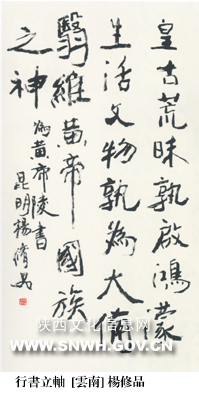 皇古荒昧孰啟鴻蒙
生活文物孰為大
翳維黃帝國族
之神
為黃帝陵書
昆明楊修品
陕西文化信息网
WWW.SNWH.GOV.CN
行書立軸 [雲南] 楊修品